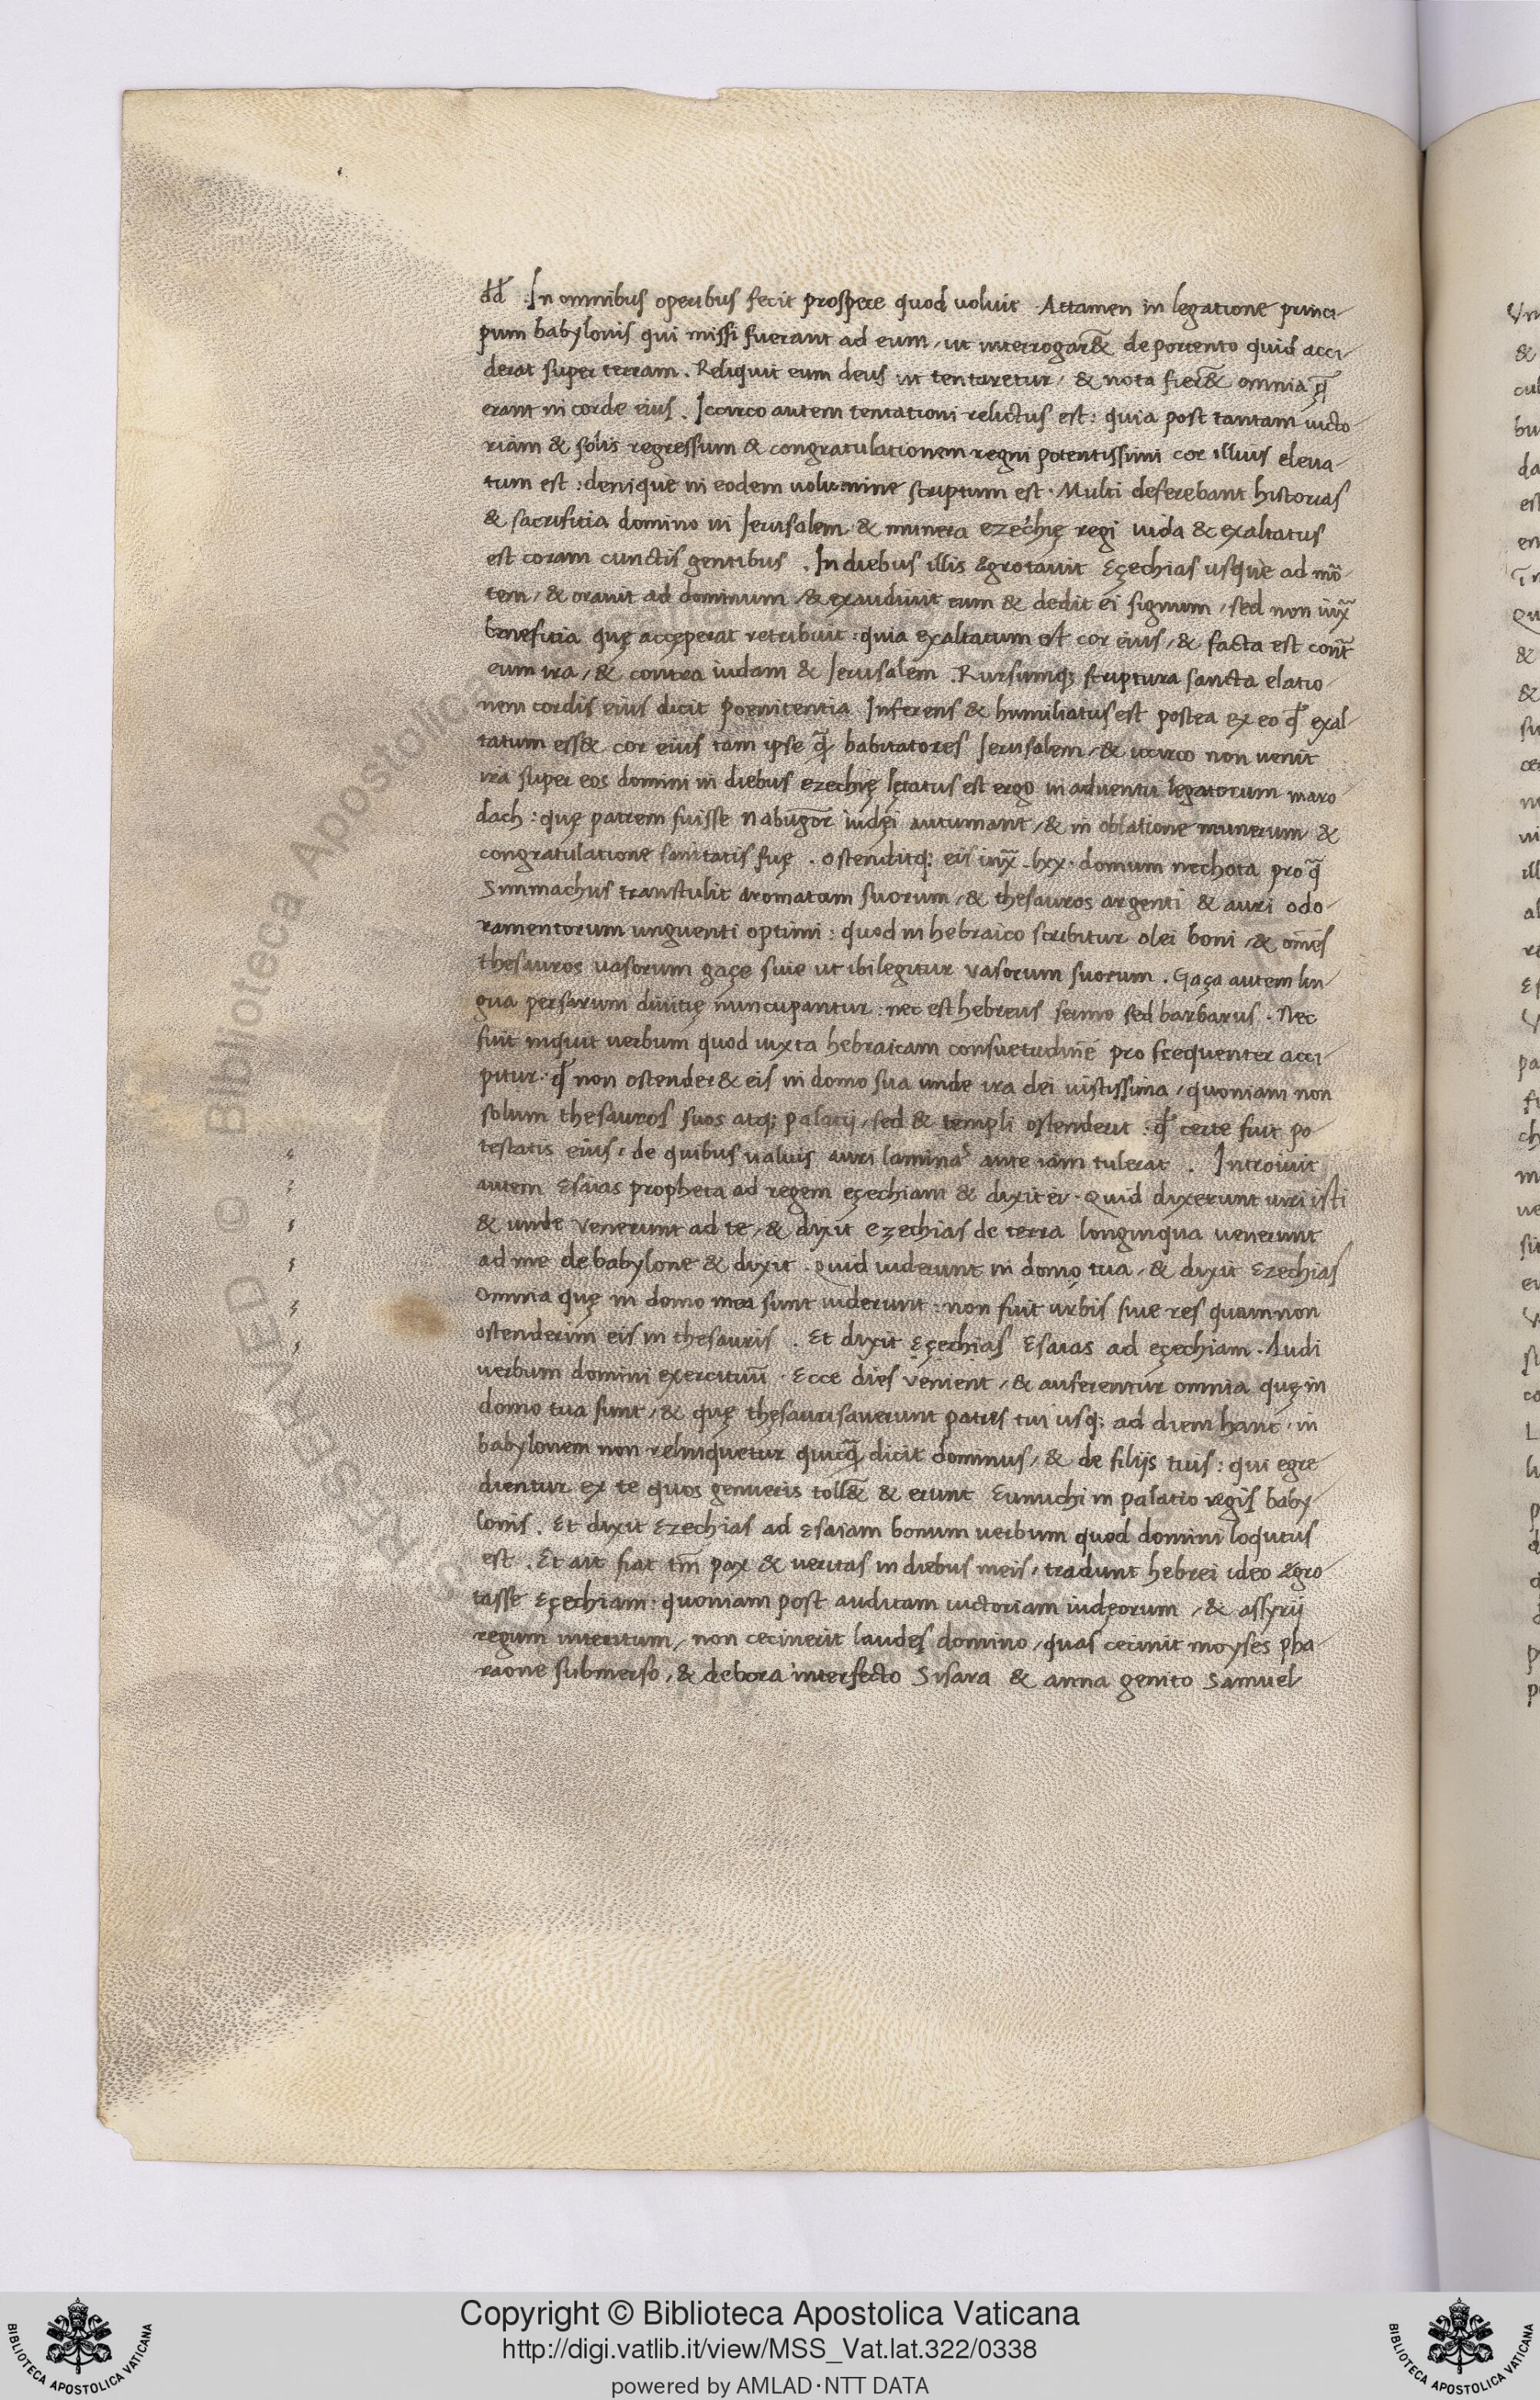 dd̄. In omnibus operibus fecit prospere quod uoluit. Attamen in legatione princi-
pum babylonis qui missi fuerant ad eum, ut interrogar&̄ de portento quid acci-
derat super terram. Reliquit eum deus ut tentaretur, & nota fier&̄ omnia q̄
erant in corde eius. Iccirco autem tentationi relictus est: quia post tantam uicto-
riam & solis regressum & congratulationem regni potentissimi cor illius eleua-
tum est: denique in eodem uolumine scriptum est. Multi deferebant historias
& sacrifitia domino in Jerusalem & munera ezechię regi iuda & exaltatus
est coram cunctis gentibus. In diebus illis ęgrotauit Eçechias usque ad mō-
tem, & orauit ad dominum & exaudiuit eum & dedit ei signum, sed non iux̄
benefitia quę acceperat retribuit: quia exaltatum est cor eius, & facta est cont̄
eum ira, & contra iudam & Jerusalem. Rursumq; scriptura sancta elatio-
nem cordis eius dicit poenitentia Inferens & humiliatus est postea ex eo q̄ exal-
tatum ess& cor eius tam ipse q̄ habitatores Jerusalem, & iccirco non uenit
ira super eos domini in diebus ezechię lętatus est ergo in aduentu legatorum maro
dach: quę patrem fuisse nabugor̄ iudęi autumant, & in oblatione munerum &
congratulatione sanitatis suę. ostenditq; eis iux̄ .lxx. domum nechota pro q̄
Simmachus transtulit aromatum suorum, & thesauros argenti & auri odo-
ramentorum unguenti optimi: quod in hebraico scribitur olei boni, & om̄es
thesauros uasorum gaçe siue ut ibi legitur uasorum suorum. Gaça autem lin-
gua persarum diuitię nuncupantur: nec est hebreus sermo sed barbarus. Nec
fuit inquit uerbum quod iuxta hebraicam consuetudinē pro frequenter acci-
pitur: q̄ non ostender& eis in domo sua unde ira dei iustissima, quoniam non
solum thesauros suos atq; palatij, sed & templi ostenderit: q̄ certe fuit po-
testatis eius, de quibus ualuis auri laminas ante iam tulerat. Introiuit
autem Esaias propheta ad regem eçechiam & dixit ei. Quid dixerunt uiri isti
& unde uenerunt ad te, & dixit ezechias de terra longinqua uenerunt
ad me de babylone & dixit. Quid uiderunt in domo tua, & dixit Ezechias
omnia quę in domo mea sunt uiderunt: non fuit urbis siue res quam non
ostenderim eis in thesauris. Et dixit Eçechias Esaias ad eçechiam. Audi
uerbum domini exercituū. Ecce dies uenient, & auferentur omnia quę in
domo tua sunt, & quę thęsaurisauerunt patres tui usq; ad diem hanc, in
babylonem non relinquetur quicq̄ dicit dominus, & de filijs tuis: qui egre-
dientur ex te quos genueris toll&̄ & erunt Eunuchi in palatio regis baby-
lonis. Et dixit Ezechias ad Esaiam bonum uerbum quod domini loqutus
est. Et ait fiat tm̄ pax & ueritas in diebus meis, tradunt hebrei ideo ęgro-
tasse Eçechiam: quoniam post auditam uictoriam iudęorum, & assyrij
regum interitum, non cecinerit laudes domino, quas cecinit moyses pha-
raone submerso, & debora interfecto Sisara & anna genito Samuel
Copyright © Biblioteca Apostolica Vaticana
http://digi.vatlib.it/view/MSS_Vat.lat.322/0338
powered by AMLAD·NTT DATA
BIBLIOTECA APOSTOLICA VATICANA
BIBLIOTECA APOSTOLICA VATICANA